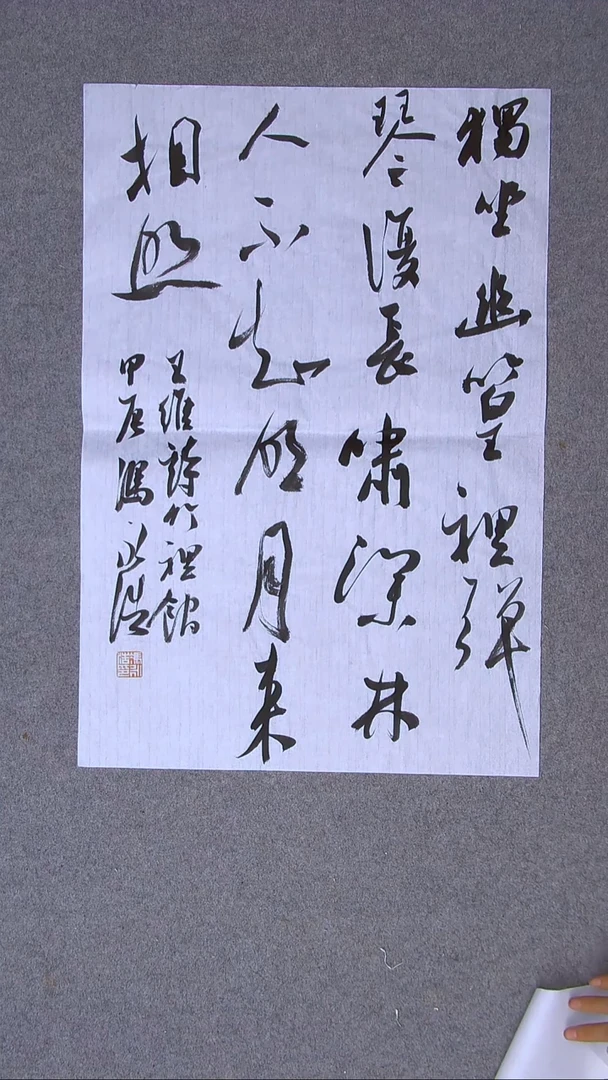 獨坐幽篁裡彈
琴復長嘯深林
人不知明月來
相照
王維詩竹裡館
甲辰馮永浩